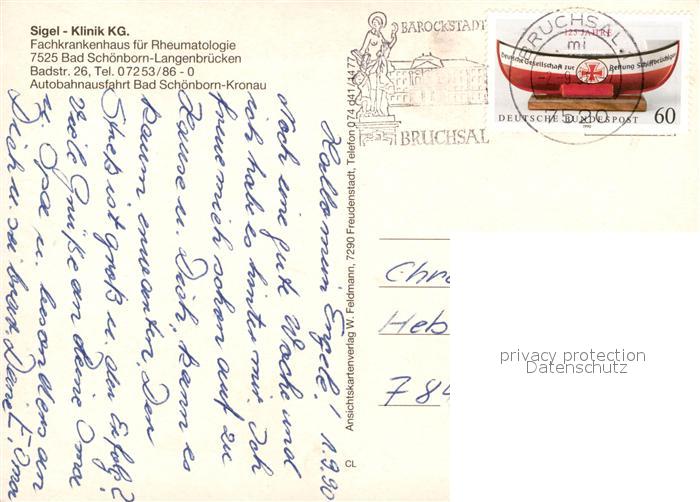 Sigel - Klinik KG.
Fachkrankenhaus für Rheumatologie
7525 Bad Schönborn-Langenbrücken
Badstr. 26, Tel. 07253/86 - 0
Autobahnausfahrt Bad Schönborn-Kronau
BAROCKSTADT
BRUCHSAL
BRUCHSAL
mi
7520
125 JAHRE
Deutsche Gesellschaft zur Rettung Schiffbrüchiger
DEUTSCHE BUNDESPOST 60
1990
1.9.90
Hallo mein Engele!
Noch eine gute Woche und
ich hab es hinter mir. Ich
freue mich schon auf zu
Hause u. Dich, kann es
kaum erwarten. Den
Streß ist groß u. der Erfolg?
Viele Grüße an Deine Oma
u. Opa u. besonders an
Dich u. sei brav Deine Oma
Ansichtskartenverlag W. Feldmann, 7290 Freudenstadt, Telefon 074 41/44 77
CL
Chr
Heb
784
privacy protection
Datenschutz